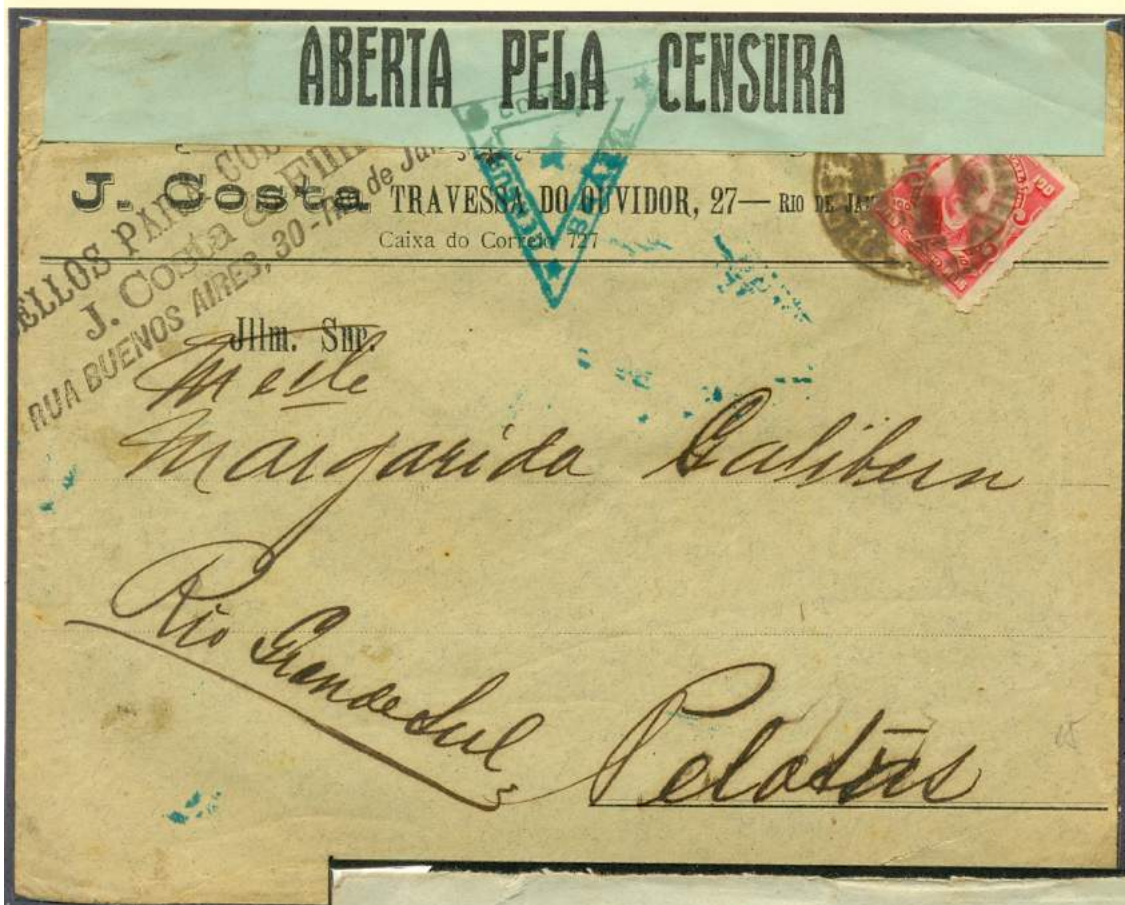 ABERTA PELA CENSURA
J. Costa TRAVESSA DO OUVIDOR, 27— RIO DE JAN
Caixa do Correio 727
ELLOS PARA COL
J. Costa & Filh
RUA BUENOS AIRES, 30 - Rio de Jan
100
Illm. Snr.
Melle
Margarida Galibern
Rio Grande Sul
Pelotas